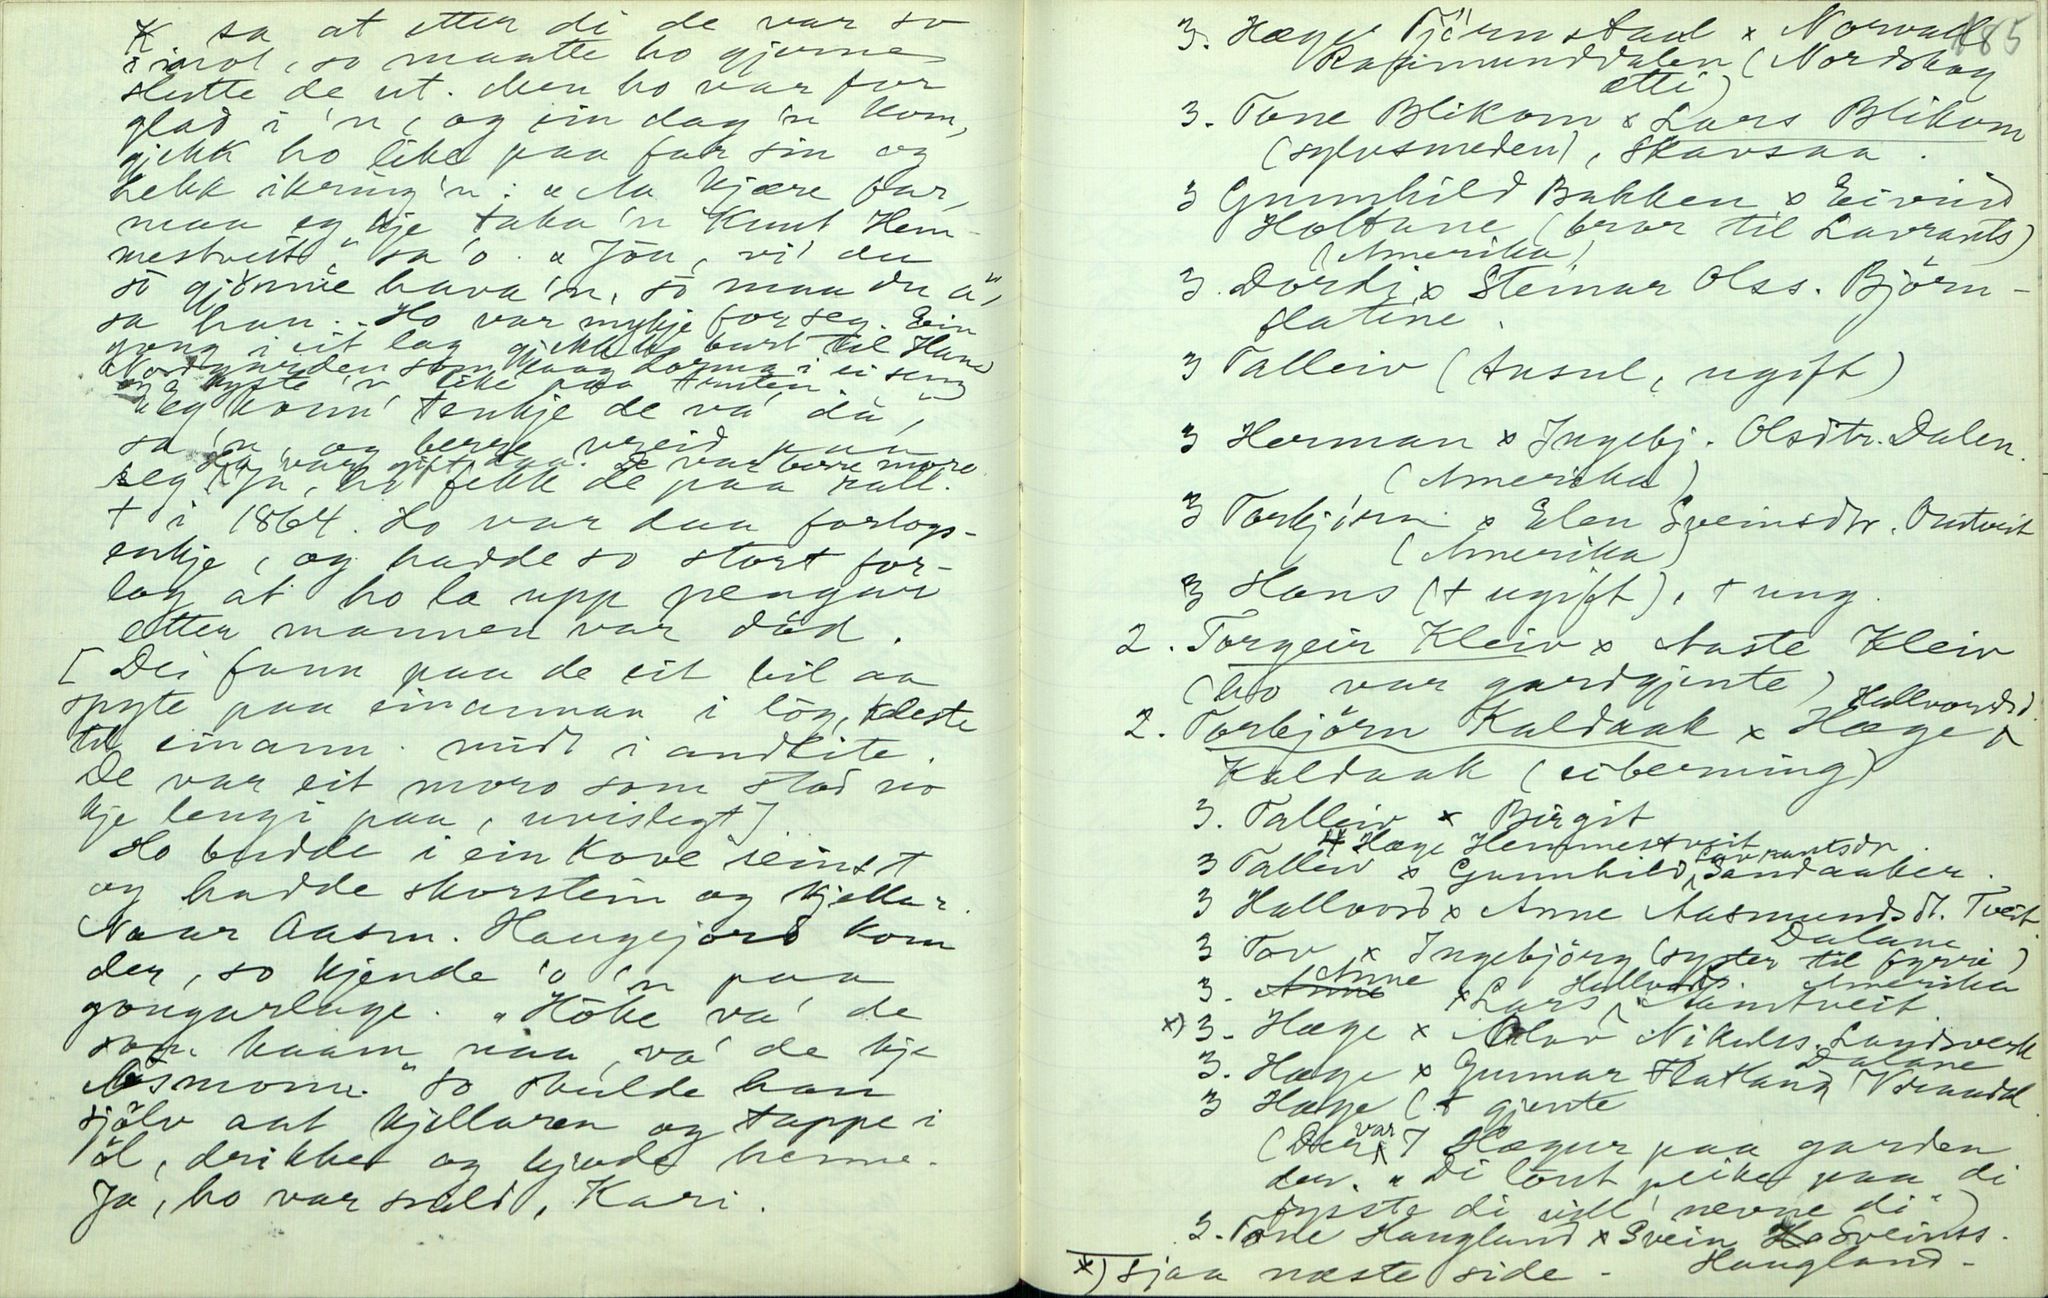 K sa at etter di de var so
imot, so maatte ho gjerne
slutte de ut. Men ho var for
glad i 'n, og ein dag 'n kom,
gjekk ho like paa far sin og
hekk ikring 'n: "Aa kjære far,
maa eg kje taka 'n Knut Hem-
mestveit," sa 'o. "Jou, vi' du
so gjönne hava 'n, so maa du d",
sa han. Ho var mykje for seg. Ein
gong i eit lag gjekk ho burt til Hans
Nordgarden som laag i ei seng
og kyste 'n like paa truten.
"Eg konn' tenkje de va' då",
sa 'n, og berre vreid paa
Ho var gift daa. De var berre moro
seg. Ja, ho fekk de paa rall.
† i 1864. Ho var daa forlogs-
enkje, og hadde so stort for-
log at ho la upp pengar
etter mannen var död.
[Dei fann paa de eit bil aa
spyte paa einannan i lög, kleste
til einann. midt i andlite.
De var eit moro som stod no
kje lengi paa, uvislegt]
Ho budde i ein kove einst
og hadde skorstein og kjellar.
Naar Aasm. Haugejord kom
der, so kjende 'o 'n paa
gongarlage. "Höke va' de
som kaam naa, va' de kje
Åsmonn." So skulde han
sjölv aat kjellaren og tappe i
öl, drikke og kjøde henne.
Ja, ho var snild, Kari.
185
3. Hæge Tjörnstaul x Norvald
Rafimunddalen (Nordskog
ætti)
3. Tone Blikom x Lars Blikom
(sylvsmeden), Skavsaa.
3 Gunnhild Bakken x Eivind
Holtane (bror til Lavrants)
(Amerika)
3. Dordi x Steinar Olss. Björn-
flatine.
3 Talleiv (Ansul, ugift)
3 Herman x Ingebj. Olsdtr. Dalen.
(Amerika)
3 Torbjörn x Elen Sveinsdtr. Omtveit
(Amerika)
3 Hans († ugift), † ung.
2. Torgeir Kleiv x Aaste Kleiv
(ho var gardgjente)
Hallvordsd.
2. Torbjörn Kaldaak x Hæge
Kaldaak (eiberning)
3. Talleiv x Birgit
4 Hæge Hemmestveit
Lavrantsdr
3 Talleiv x Gunnhild Sandaaker.
3 Hallvord x Anne Aasmundsdt. Tveit.
Dalane
3 Tov x Ingebjörg (syster til fyrri)
Anne Hallvords. Amerika
3. Anne x Lars Aamtveit
x) 3. Hæge x Olav Nikulss. Landsverk
Dalane
3. Hæge x Gunnar Flatland (Vraadal
3 Hæge († gjente
(Der var 7 Hægur paa garden
der. "Di lout peike paa di
fysste di vill' nevne di")
3. Tone Haugland x Svein Sveinss.
Haugland.
x) sjaa næste side.